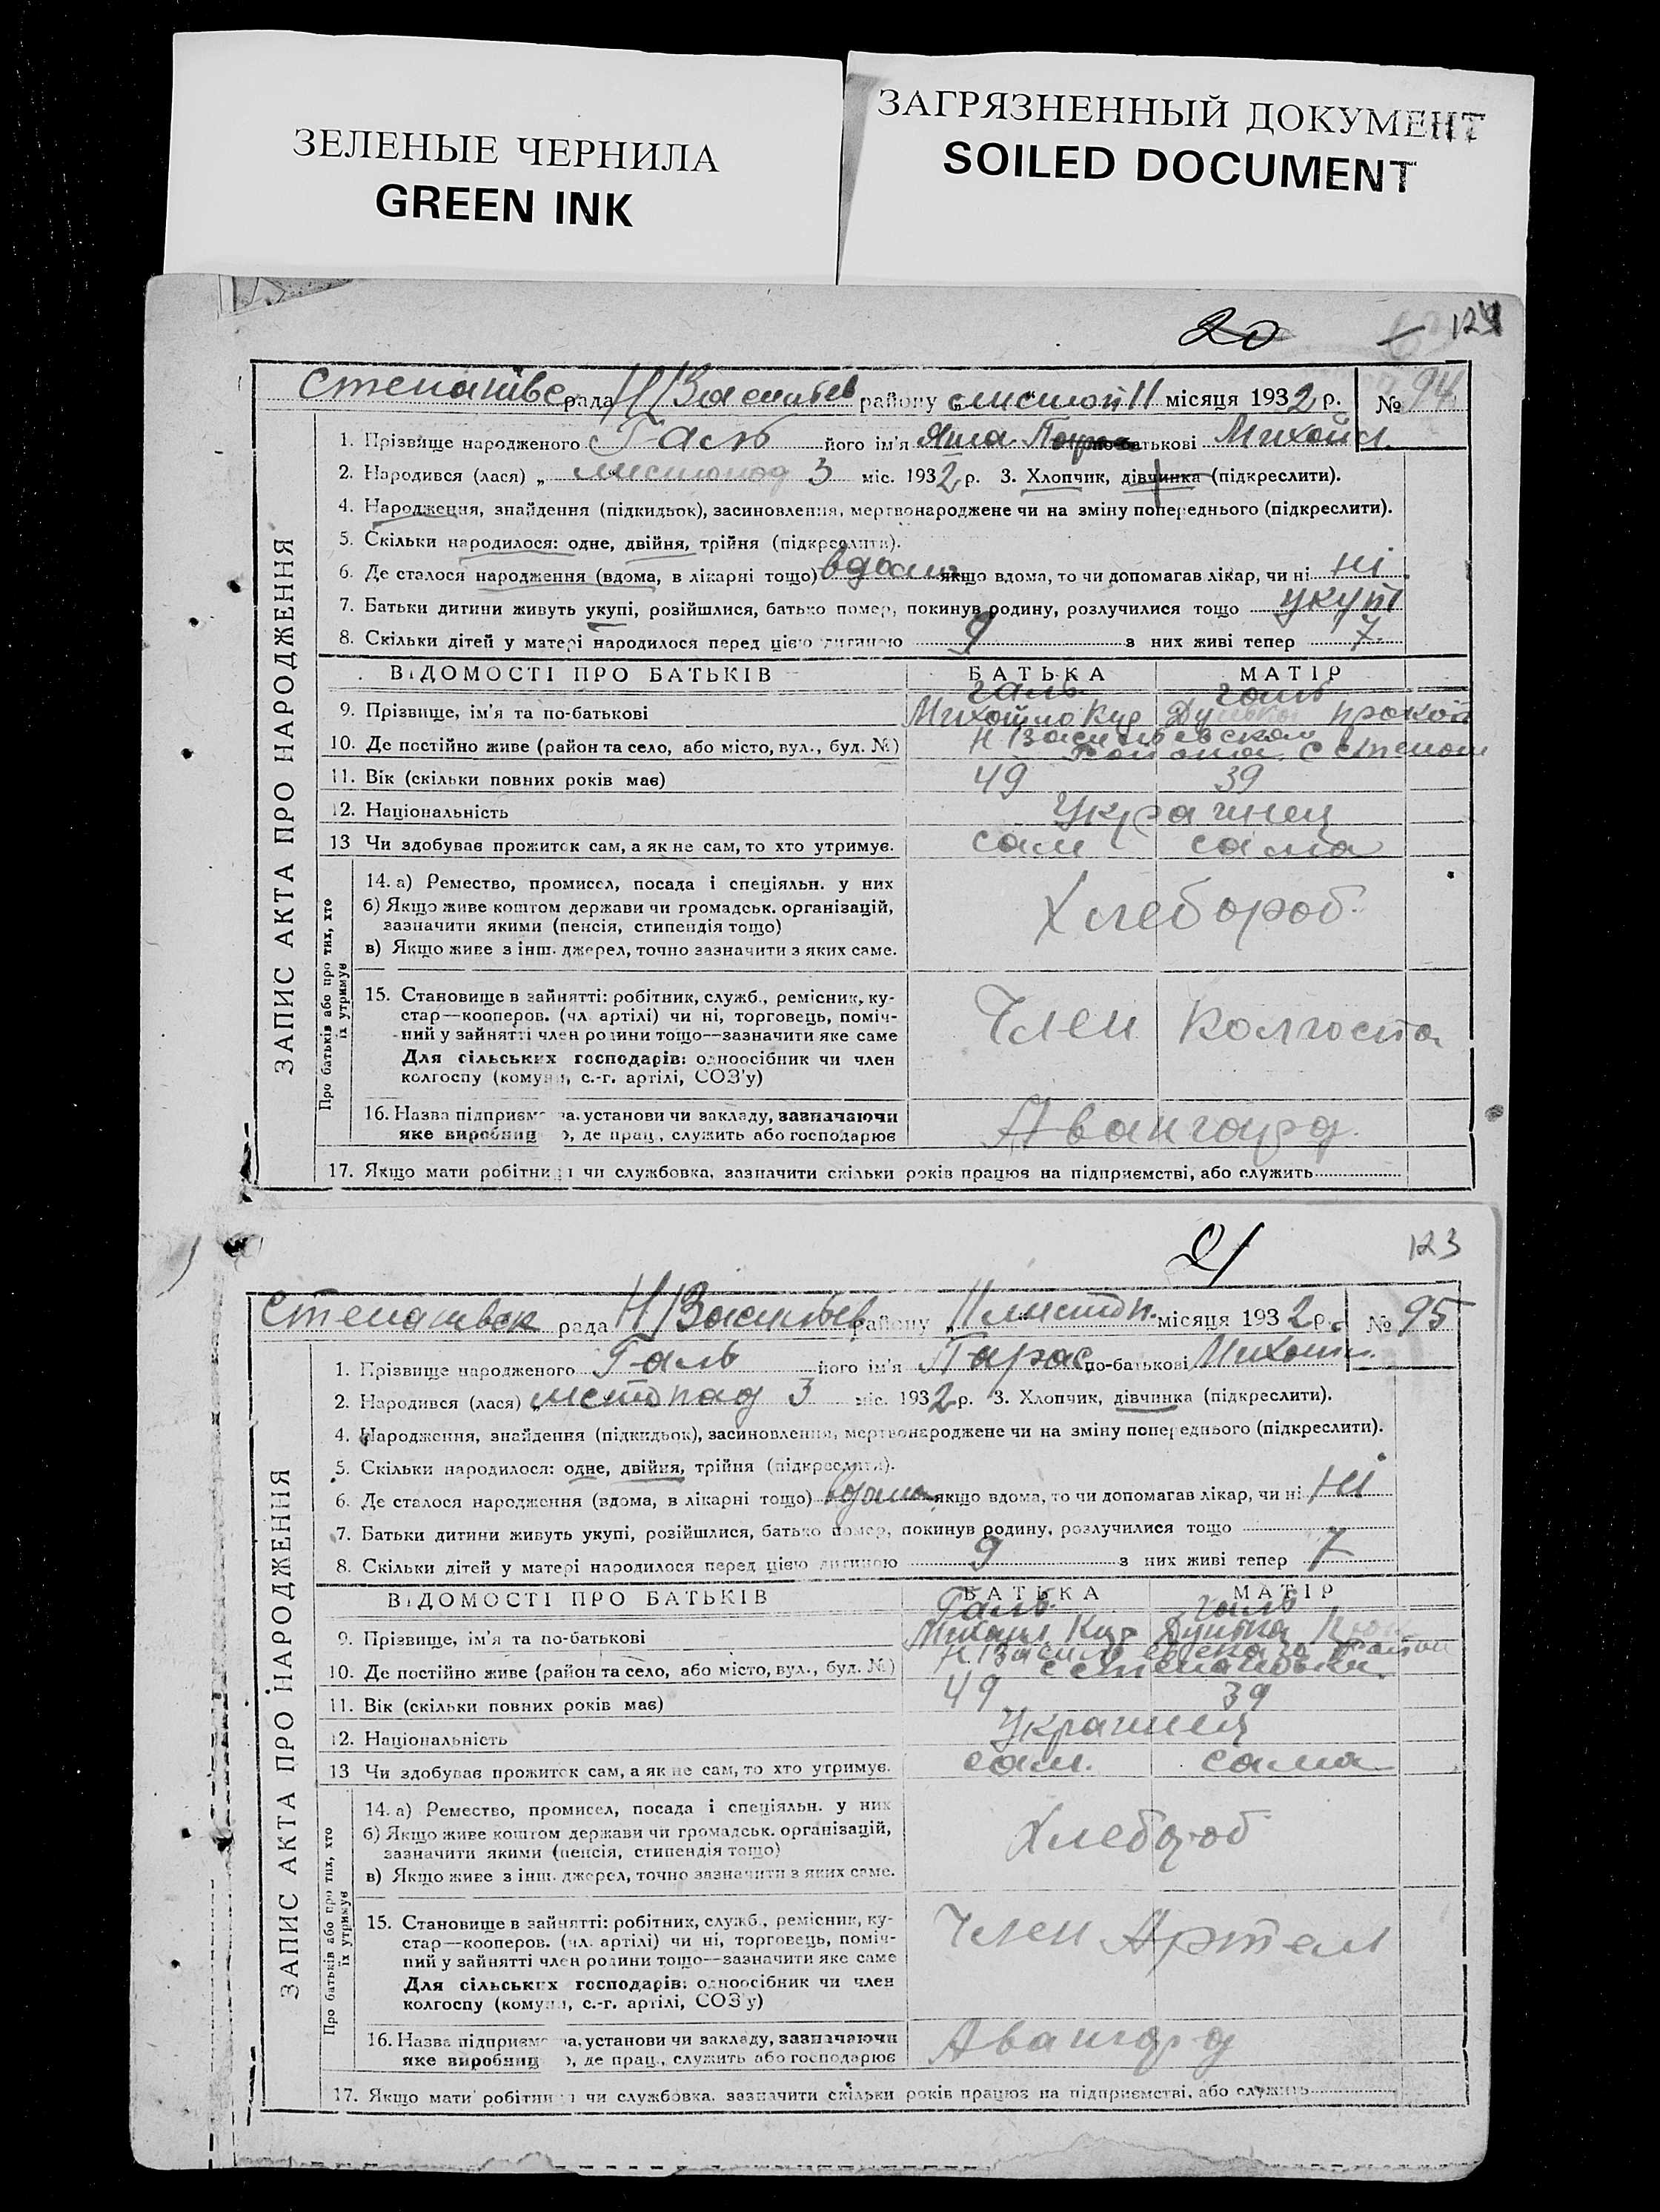 ЗЕЛЕНЫЕ ЧЕРНИЛА
GREEN INK
ЗАГРЯЗНЕННЫЙ ДОКУМЕНТ
SOILED DOCUMENT
20
ЗАПИС АКТА ПРО НАРОДЖЕННЯ
рада Н/Васильев району 11 місяця 1932 р. № 94
1. Прізвище народженого Галь його ім'я по-батькові Михайл
2. Народився (лася) „ листопад 3 міс. 1932 р. 3. Хлопчик, дівчинка (підкреслити).
4. Народження, знайдення (підкидьок), засиновлення, мертвонароджене чи на зміну попереднього (підкреслити).
5. Скільки народилося: одне, двійня, трійня (підкреслити).
6. Де сталося народження (вдома, в лікарні тощо) вдома якщо вдома, то чи допомагав лікар, чи ні ні
7. Батьки дитини живуть укупі, розійшлися, батько помер, покинув родину, розлучилися тощо укупі
8. Скільки дітей у матері народилося перед цією дитиною 9 з них живі тепер 7
ВІДОМОСТІ ПРО БАТЬКІВ БАТЬКА МАТІР
9. Прізвище, ім'я та по-батькові галь Михойло Кир галь Прокоп
10. Де постійно живе (район та село, або місто, вул., буд. №)
11. Вік (скільки повних років має) 49 39
12. Національність Украинец
13 Чи здобуває прожиток сам, а як не сам, то хто утримує. сам сама
Про батьків або про тих, хто їх утримує
14. а) Ремество, промисел, посада і спеціяльн. у них
б) Якщо живе коштом держави чи громадськ. організацій,
зазначити якими (пенсія, стипендія тощо)
в) Якщо живе з інш. джерел, точно зазначити з яких саме.
Хлебороб
15. Становище в зайнятті: робітник, служб., ремісник, ку-
стар—кооперов. (чл. артілі) чи ні, торговець, поміч-
ний у зайнятті член родини тощо—зазначити яке саме
Для сільських господарів: одноосібник чи член
колгоспу (комуни, с.-г. артілі, СОЗ'у)
Член Колгоспа
16. Назва підприємства, установи чи закладу, зазначаючи
яке виробниц , де прац., служить або господарює
Авангард
17. Якщо мати робітниця чи службовка, зазначити скільки років працює на підприємстві, або служить
21 123
ЗАПИС АКТА ПРО НАРОДЖЕННЯ
рада Н/Васильев району „11 листоп. місяця 1932 р. № 95
1. Прізвище народженого Галь його ім'я Тарас по-батькові
2. Народився (лася) „ листопад 3 міс. 1932 р. 3. Хлопчик, дівчинка (підкреслити).
4. Народження, знайдення (підкидьок), засиновлення, мертвонароджене чи на зміну попереднього (підкреслити).
5. Скільки народилося: одне, двійня, трійня (підкреслити).
6. Де сталося народження (вдома, в лікарні тощо) вдома якщо вдома, то чи допомагав лікар, чи ні ні
7. Батьки дитини живуть укупі, розійшлися, батько помер, покинув родину, розлучилися тощо
8. Скільки дітей у матері народилося перед цією дитиною 9 з них живі тепер 7
ВІДОМОСТІ ПРО БАТЬКІВ БАТЬКА МАТІР
9. Прізвище, ім'я та по-батькові Галь Михаил Кир галь Дунька
10. Де постійно живе (район та село, або місто, вул., буд. №)
11. Вік (скільки повних років має) 49 39
12. Національність Украинец
13 Чи здобуває прожиток сам, а як не сам, то хто утримує. сам. сама
Про батьків або про тих, хто їх утримує
14. а) Ремество, промисел, посада і спеціяльн. у них
б) Якщо живе коштом держави чи громадськ. організацій,
зазначити якими (пенсія, стипендія тощо)
в) Якщо живе з інш. джерел, точно зазначити з яких саме.
Хлебороб
15. Становище в зайнятті: робітник, служб., ремісник, ку-
стар—кооперов. (чл. артілі) чи ні, торговець, поміч-
ний у зайнятті член родини тощо—зазначити яке саме
Для сільських господарів: одноосібник чи член
колгоспу (комуни, с.-г. артілі, СОЗ'у)
Член Артели
16. Назва підприємства, установи чи закладу, зазначаючи
яке виробниц , де прац., служить або господарює
Авангард
17. Якщо мати робітниця чи службовка, зазначити скільки років працює на підприємстві, або служить